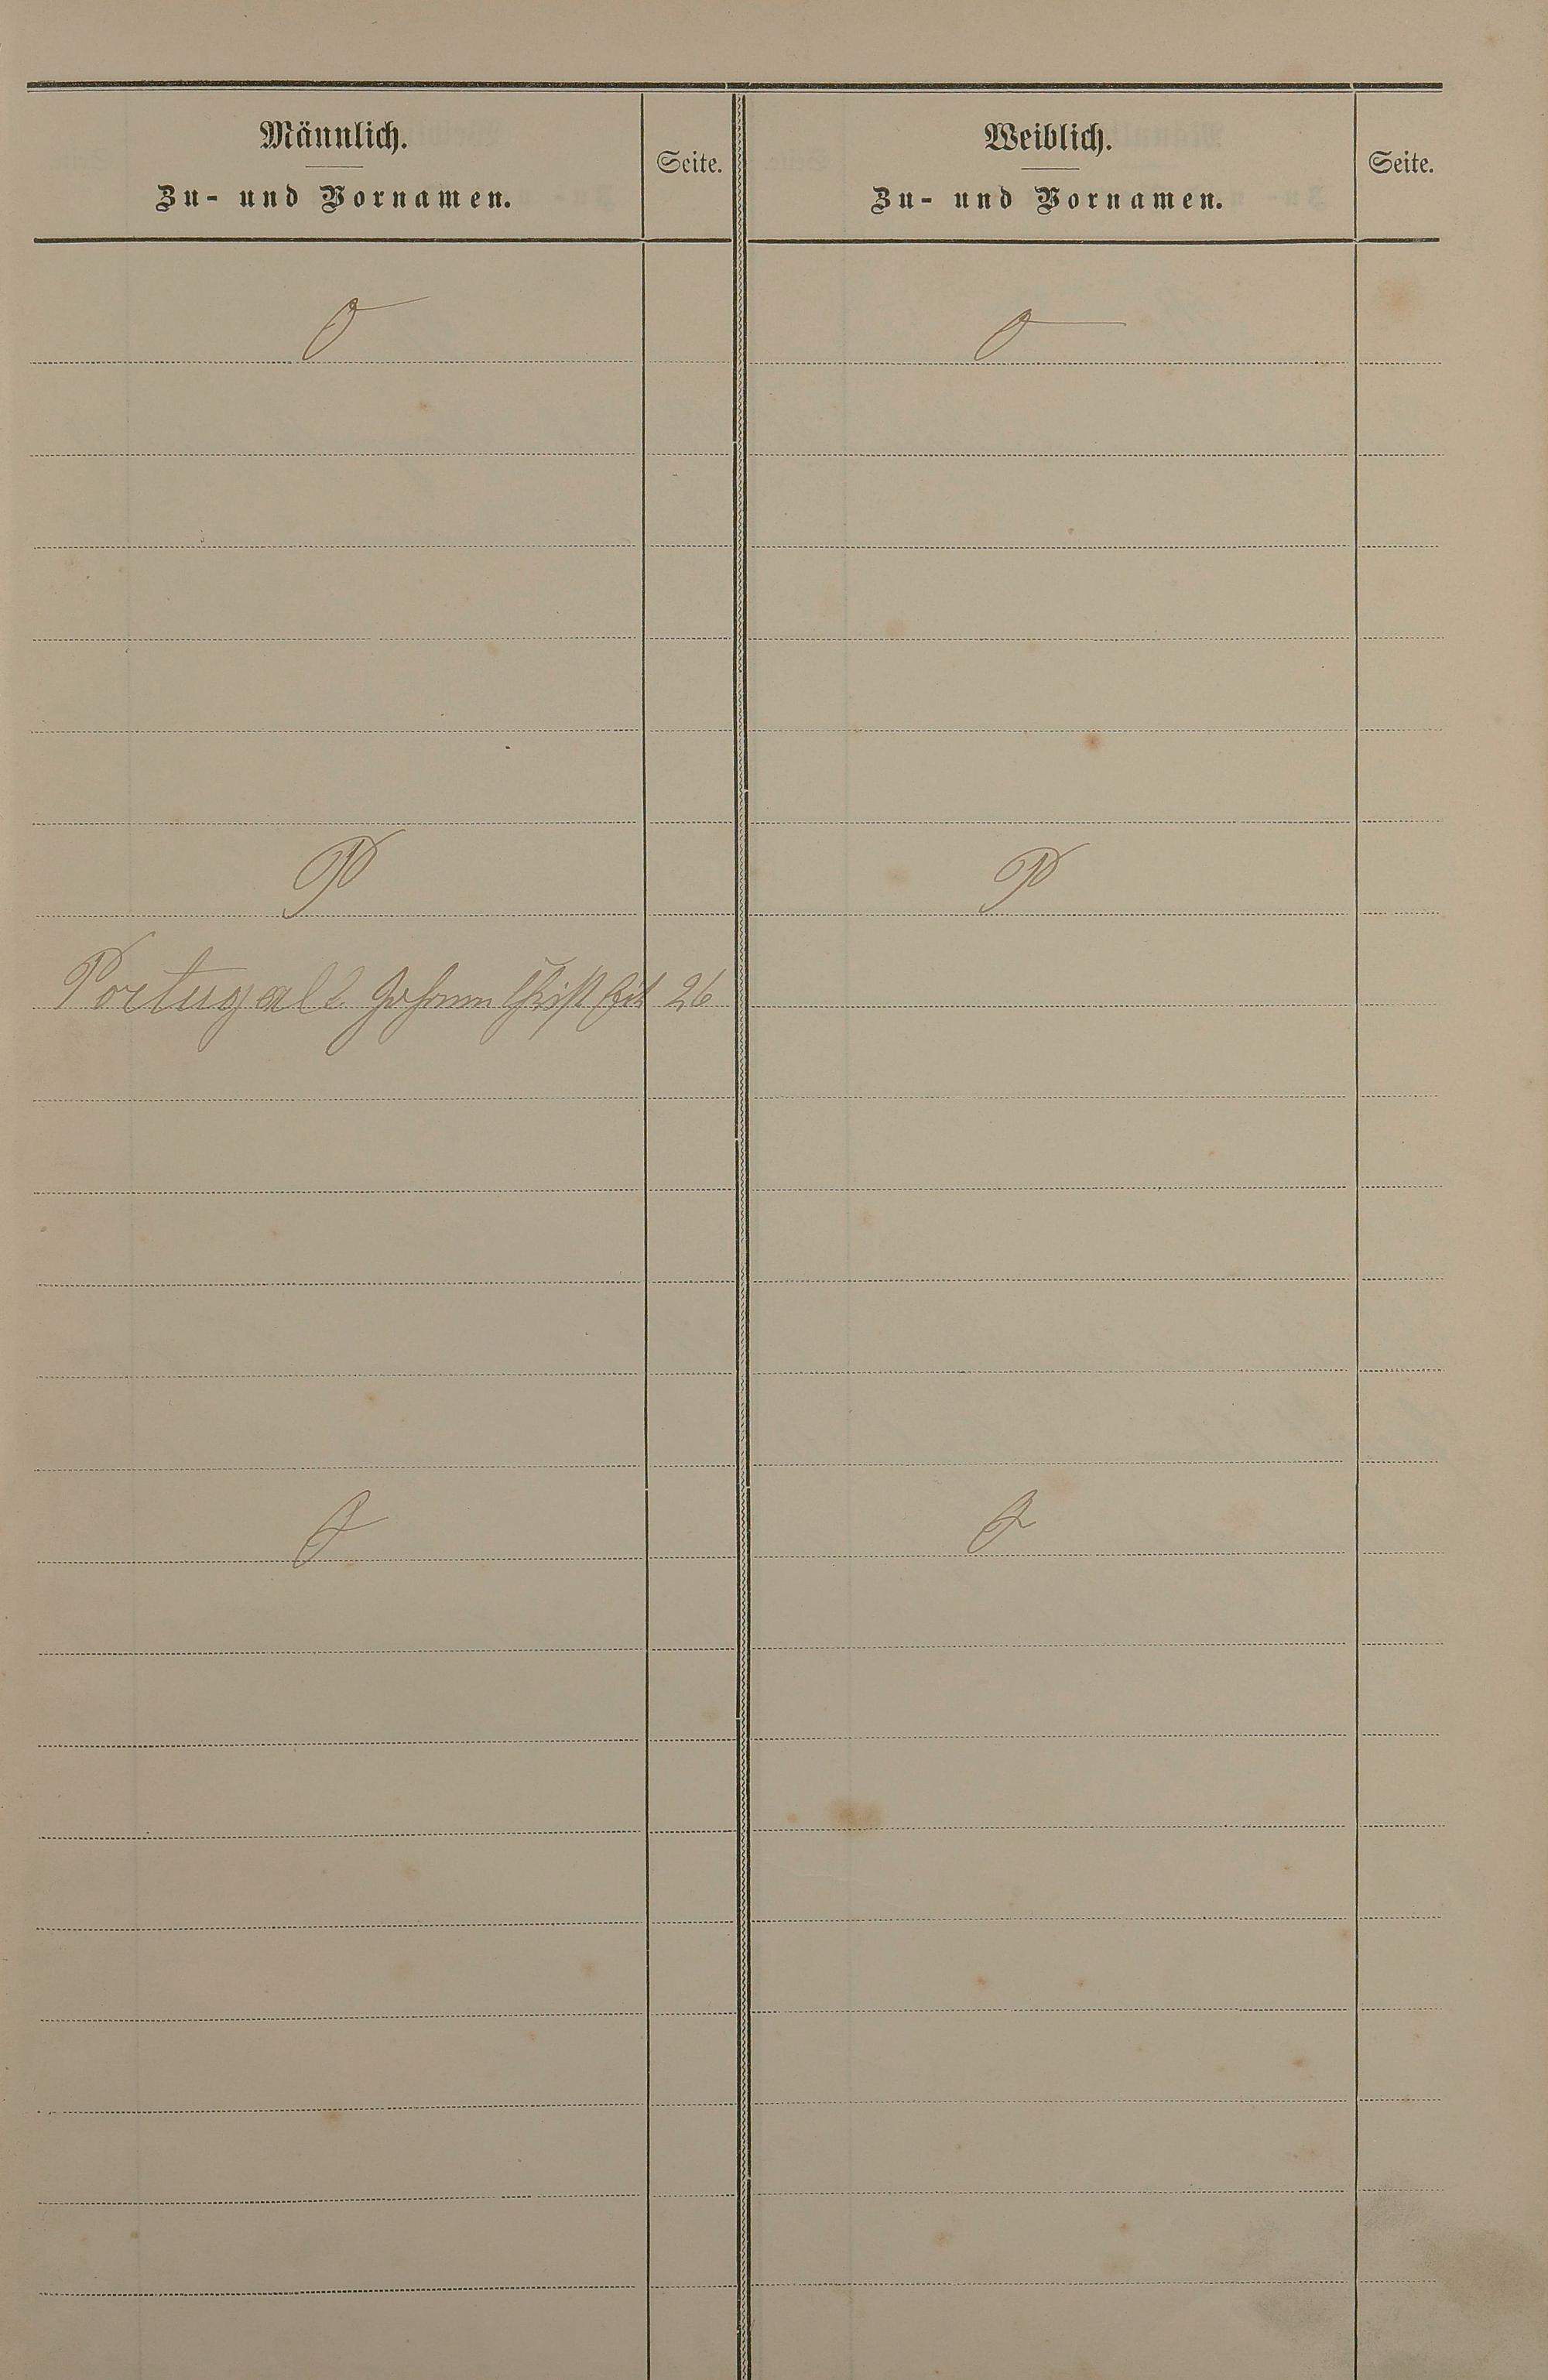 Männlich.
Zu- und Vornamen.
Seite.
Weiblich.
Zu- und Vornamen.
Seite.
O
O
P
P
Portugall Johann Christ 26
Q
Q